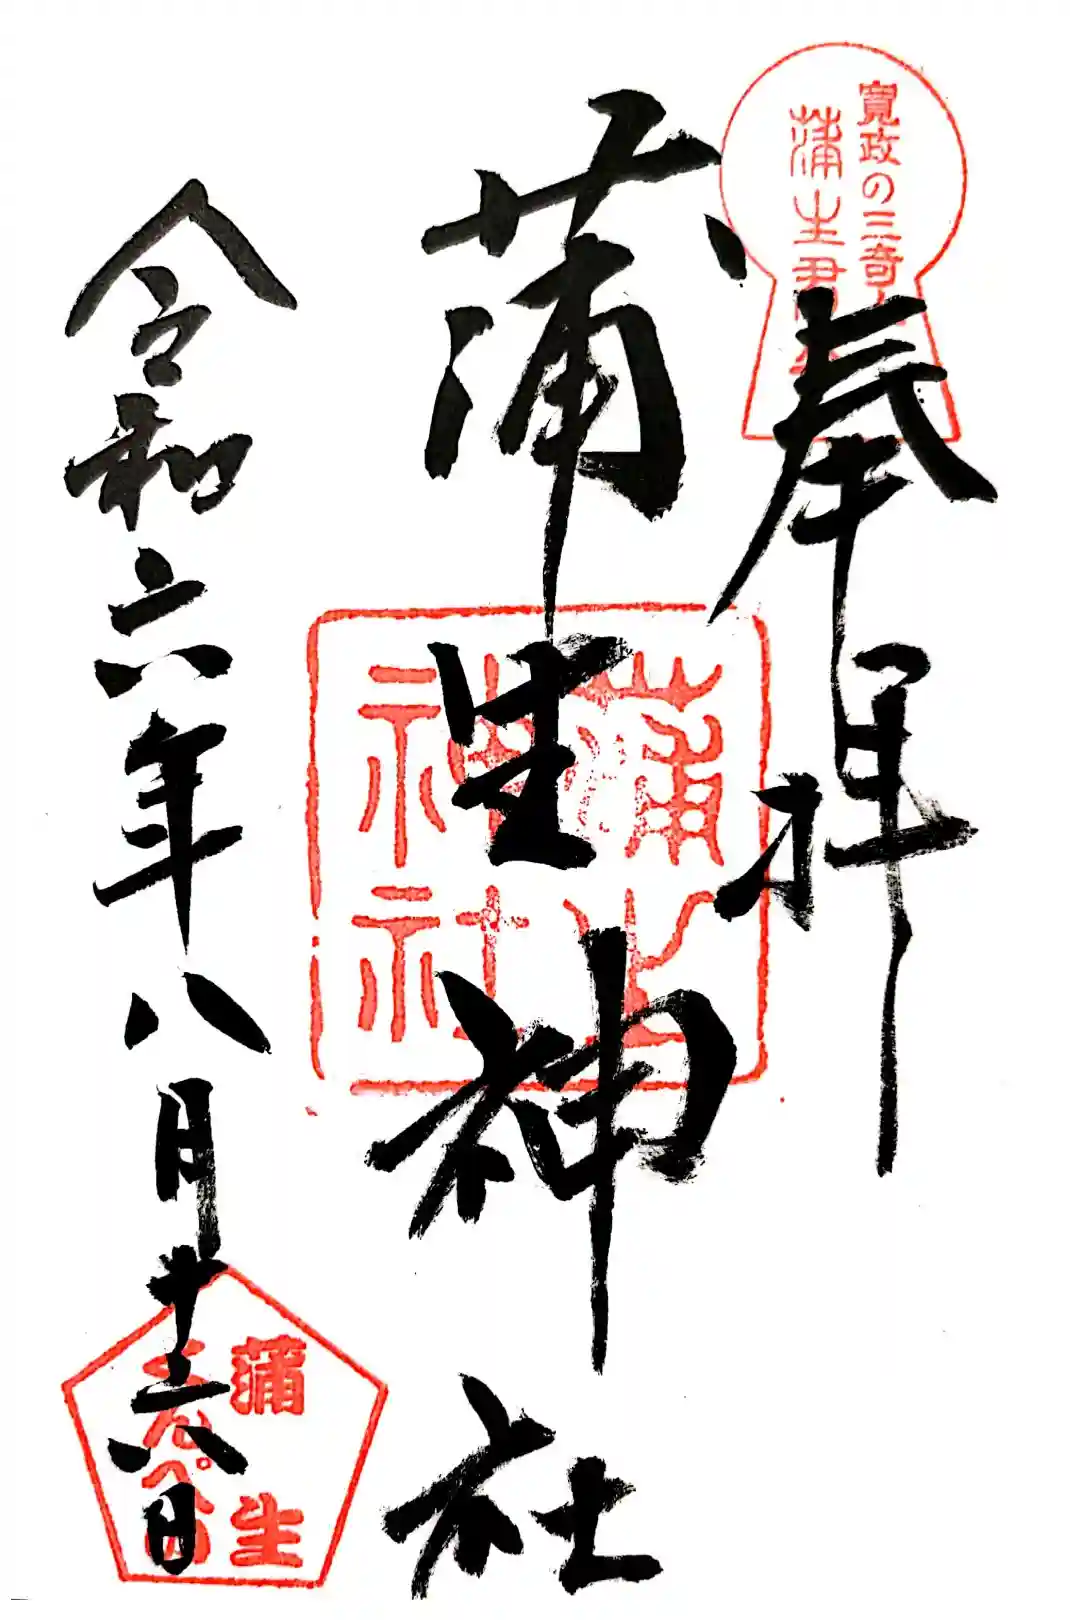 寛政の三奇人
蒲生君平
奉拝
蒲生神社
蒲生
神社
令和六年八月十六日
蒲生
くんぺい